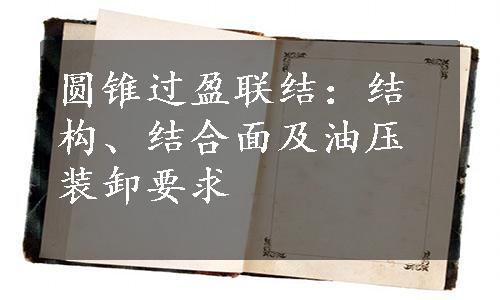 圆锥过盈联结：结
构、结合面及油压
装卸要求